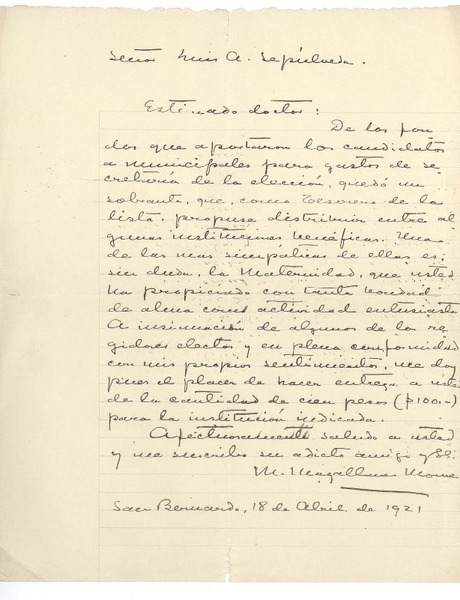 Señor Luis A. Sepúlveda.
Estimado doctor:
De los fon
dos que aportaron los candidatos
a municipales para gastos de se
cretaría de la elección, quedó un
sobrante, que, como Tesorero de la
lista, propuse distribuir entre al
gunas instituciones benéficas. Una
de las más simpáticas de ellas es,
sin duda, la Maternidad, que usted
ha propiciado con tanta bondad
de alma como actividad entusiasta.
A insinuación de algunos de los re
gidores electos y en plena conformidad
con mis propios sentimientos, me doy
pues el placer de hacer entrega a usted
de la cantidad de cien pesos ($100.-)
para la institución indicada.
Afectuosamente saludo a usted
y me suscribo su adicto amigo y
M. Magallanes Moure
San Bernardo, 18 de Abril de 1921